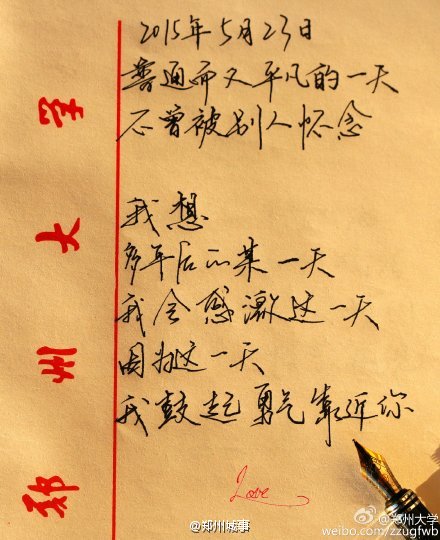 2015年5月23日
普通而又平凡的一天
不曾被别人怀念
我想
多年后的某一天
我会感激这一天
因为这一天
我鼓起勇气靠近你
Love
郑州大学
@郑州城事
@郑州大学
weibo.com/zzugfwb